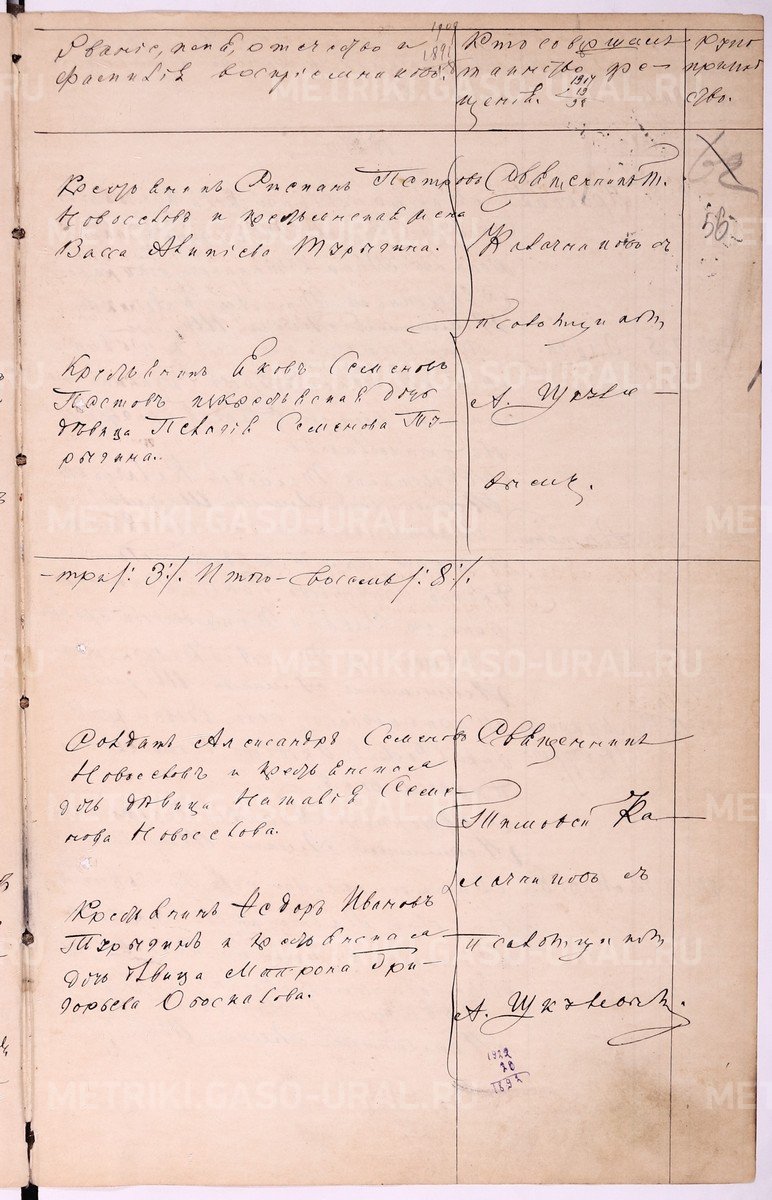 Званіе, имя, отчество и
фамилія воспріемниковъ.
Кто совершалъ
таинство кре-
щенія.
Руко
приклад
ство.
1914
19
56
Крестьянинъ Степанъ Петровъ
Новоселовъ и крестьянская жена
Васса Турыгина.
Священникъ Т.
Калачниковъ съ
псаломщикомъ
А.
Крестьянинъ Яковъ Семеновъ
и крестьянская дочь
дѣвица Пелагія Семенова Ту-
рыгина.
-три /: 3 :/. Итого - восемь /: 8 :/.
Солдатъ Александръ Семеновъ
Новоселовъ и крестьянская
дочь дѣвица Наталія Семе-
нова Новоселова.
Священникъ
Тимофей Ка-
лачниковъ съ
псаломщикомъ
А.
Крестьянинъ Ѳедоръ Ивановъ
Турыгинъ и крестьянская
дочь дѣвица Матрона Гри-
горьева
1922
20
1892
METRIKI.GASO-URAL.RU